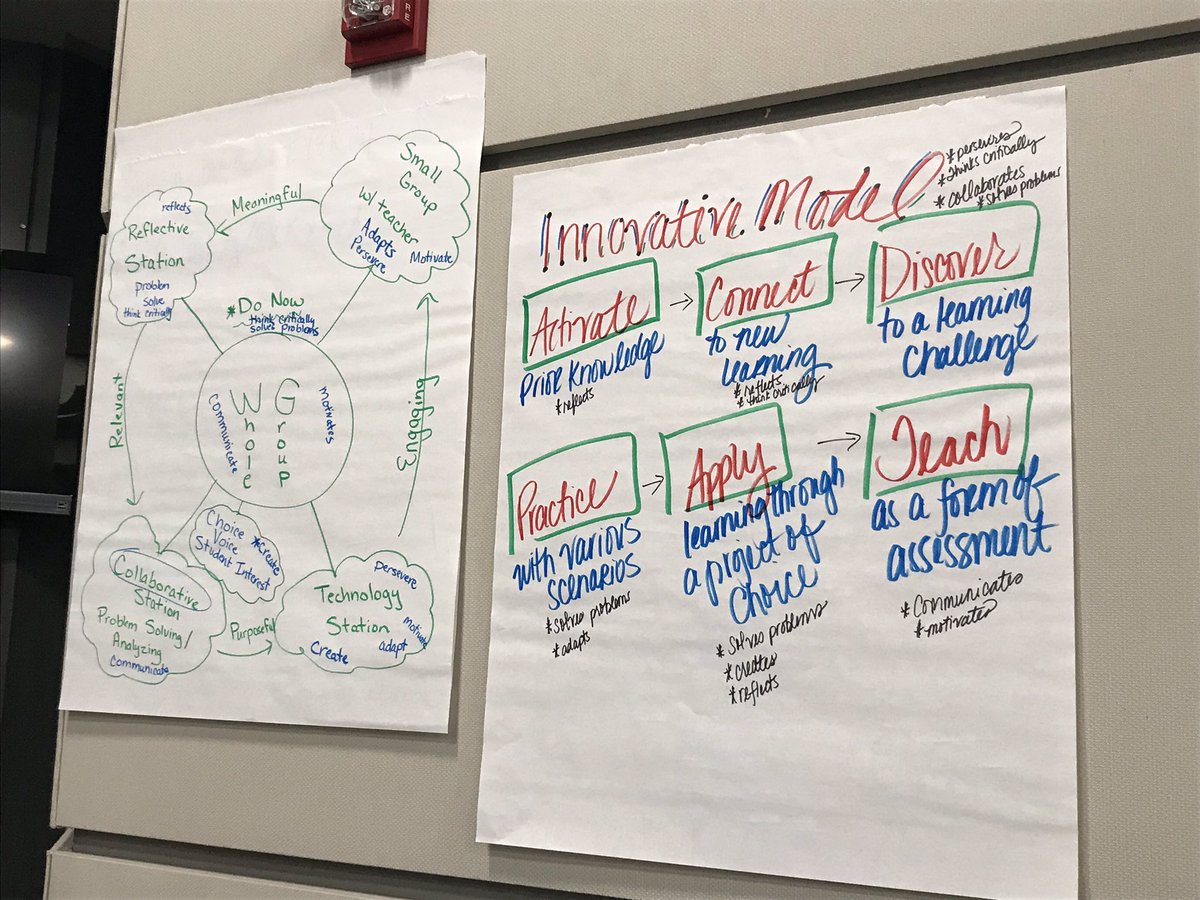 RE
Small
Group
w/ teacher
Adapts
Persevere
Motivate
Meaningful
reflects
Reflective
Station
problem
solve
think critically
*Do Now
think critically
solves problems
Relevant
Whole
Group
communicate
motivates
Engaging
Choice
Voice
*Create
Student Interest
Collaborative
Station
Problem Solving/
Analyzing
Communicate
Purposeful
persevere
Technology
Station
motivate
adapt
Create
Innovative Model
*persevires
*thinks critically
*collaborates
*solves problems
Activate
Prior Knowledge
*reflects
Connect
to new
learning
*reflects
*think critically
Discover
to a learning
challenge
Practice
with various
scenarios
*solves problems
*adapts
Apply
learning through
a project of
choice
*solves problems
*creates
*reflects
Teach
as a form of
assessment
*Communicates
*motivates